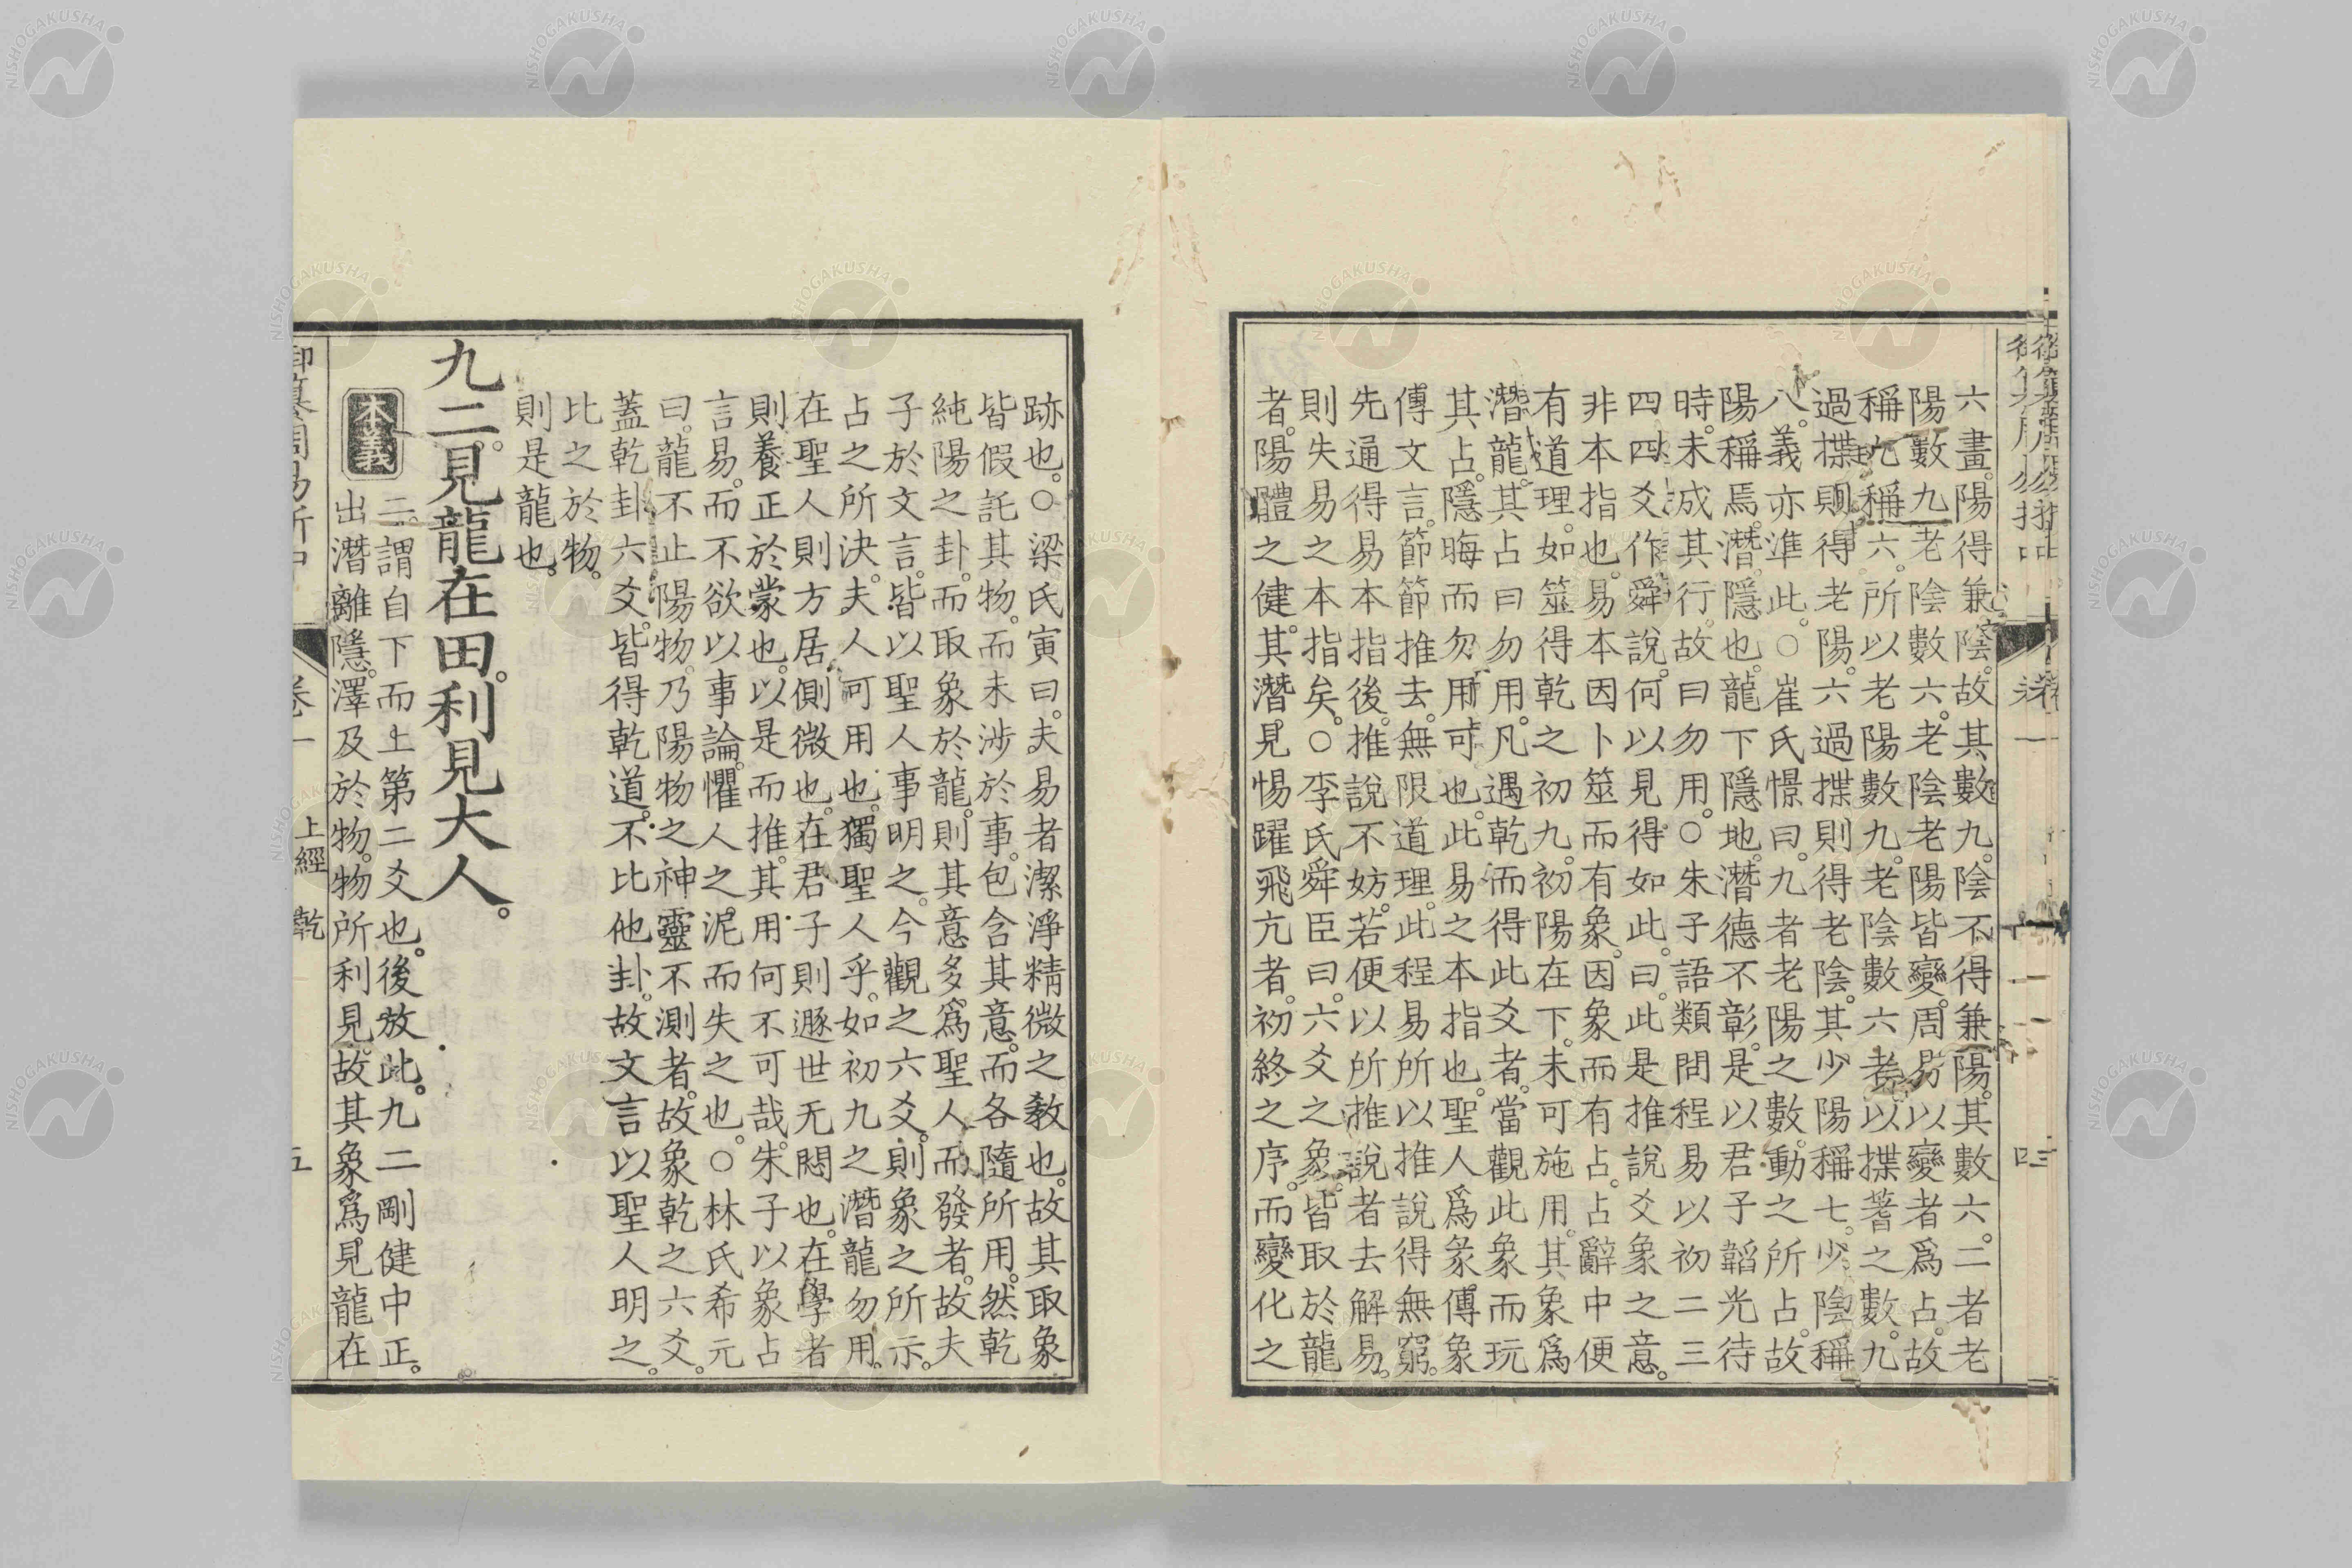 六畫。陽得兼陰。故其數九。陰不得兼陽。其數六。二者老
陽數九。老陰數六。老陰老陽皆變。周易以變者爲占。故
稱九稱六。所以老陽數九。老陰數六者。以揲蓍之數。九
過揲則得老陽。六過揲則得老陰。其少陽稱七。少陰稱
八。義亦準此。○崔氏憬曰。九者老陽之數。動之所占。故
陽稱焉。潛。隱也。龍下隱地。潛德不彰。是以君子韜光待
時。未成其行。故曰勿用。○朱子語類問程易以初二三
四四爻作舜說。何以見得如此。曰。此是推說爻象之意。
非本指也。易本因卜筮而有象。因象而有占。占辭中便
有道理。如筮得乾之初九。初陽在下。未可施用。其象爲
潛龍。其占曰勿用。凡遇乾而得此爻者。當觀此象而玩
其占。隱晦而勿用可也。此易之本指也。聖人爲彖傳象
傳文言。節節推去。無限道理。此程易所以推說得無窮。
先通得易本指後。推說不妨。若便以所推說者去解易。
則失易之本指矣。○李氏舜臣曰。六爻之象。皆取於龍
者。陽體之健。其潛見惕躍飛亢者。初終之序。而變化之
跡也。○梁氏寅曰。夫易者潔淨精微之敎也。故其取象
皆假託其物。而未涉於事。包含其意。而各隨所用。然乾
純陽之卦。而取象於龍。則其意多爲聖人而發者。故夫
子於文言。皆以聖人事明之。今觀之六爻。則象之所示。
占之所決。夫人可用也。獨聖人乎。如初九之潛龍勿用。
在聖人則方居側微也。在君子則遯世无悶也。在學者
則養正於蒙也。以是而推。其用何不可哉。朱子以象占
言易。而不欲以事論。懼人之泥而失之也。○林氏希元
曰。龍不止陽物。乃陽物之神靈不測者。故象乾之六爻。
蓋乾卦六爻。皆得乾道。不比他卦。故文言以聖人明之。
比之於物。
則是龍也。
九二。見龍在田。利見大人。
本義
二。謂自下而上第二爻也。後放此。九二剛健中正。
出潛離隱。澤及於物。物所利見。故其象爲見龍在
上經 乾